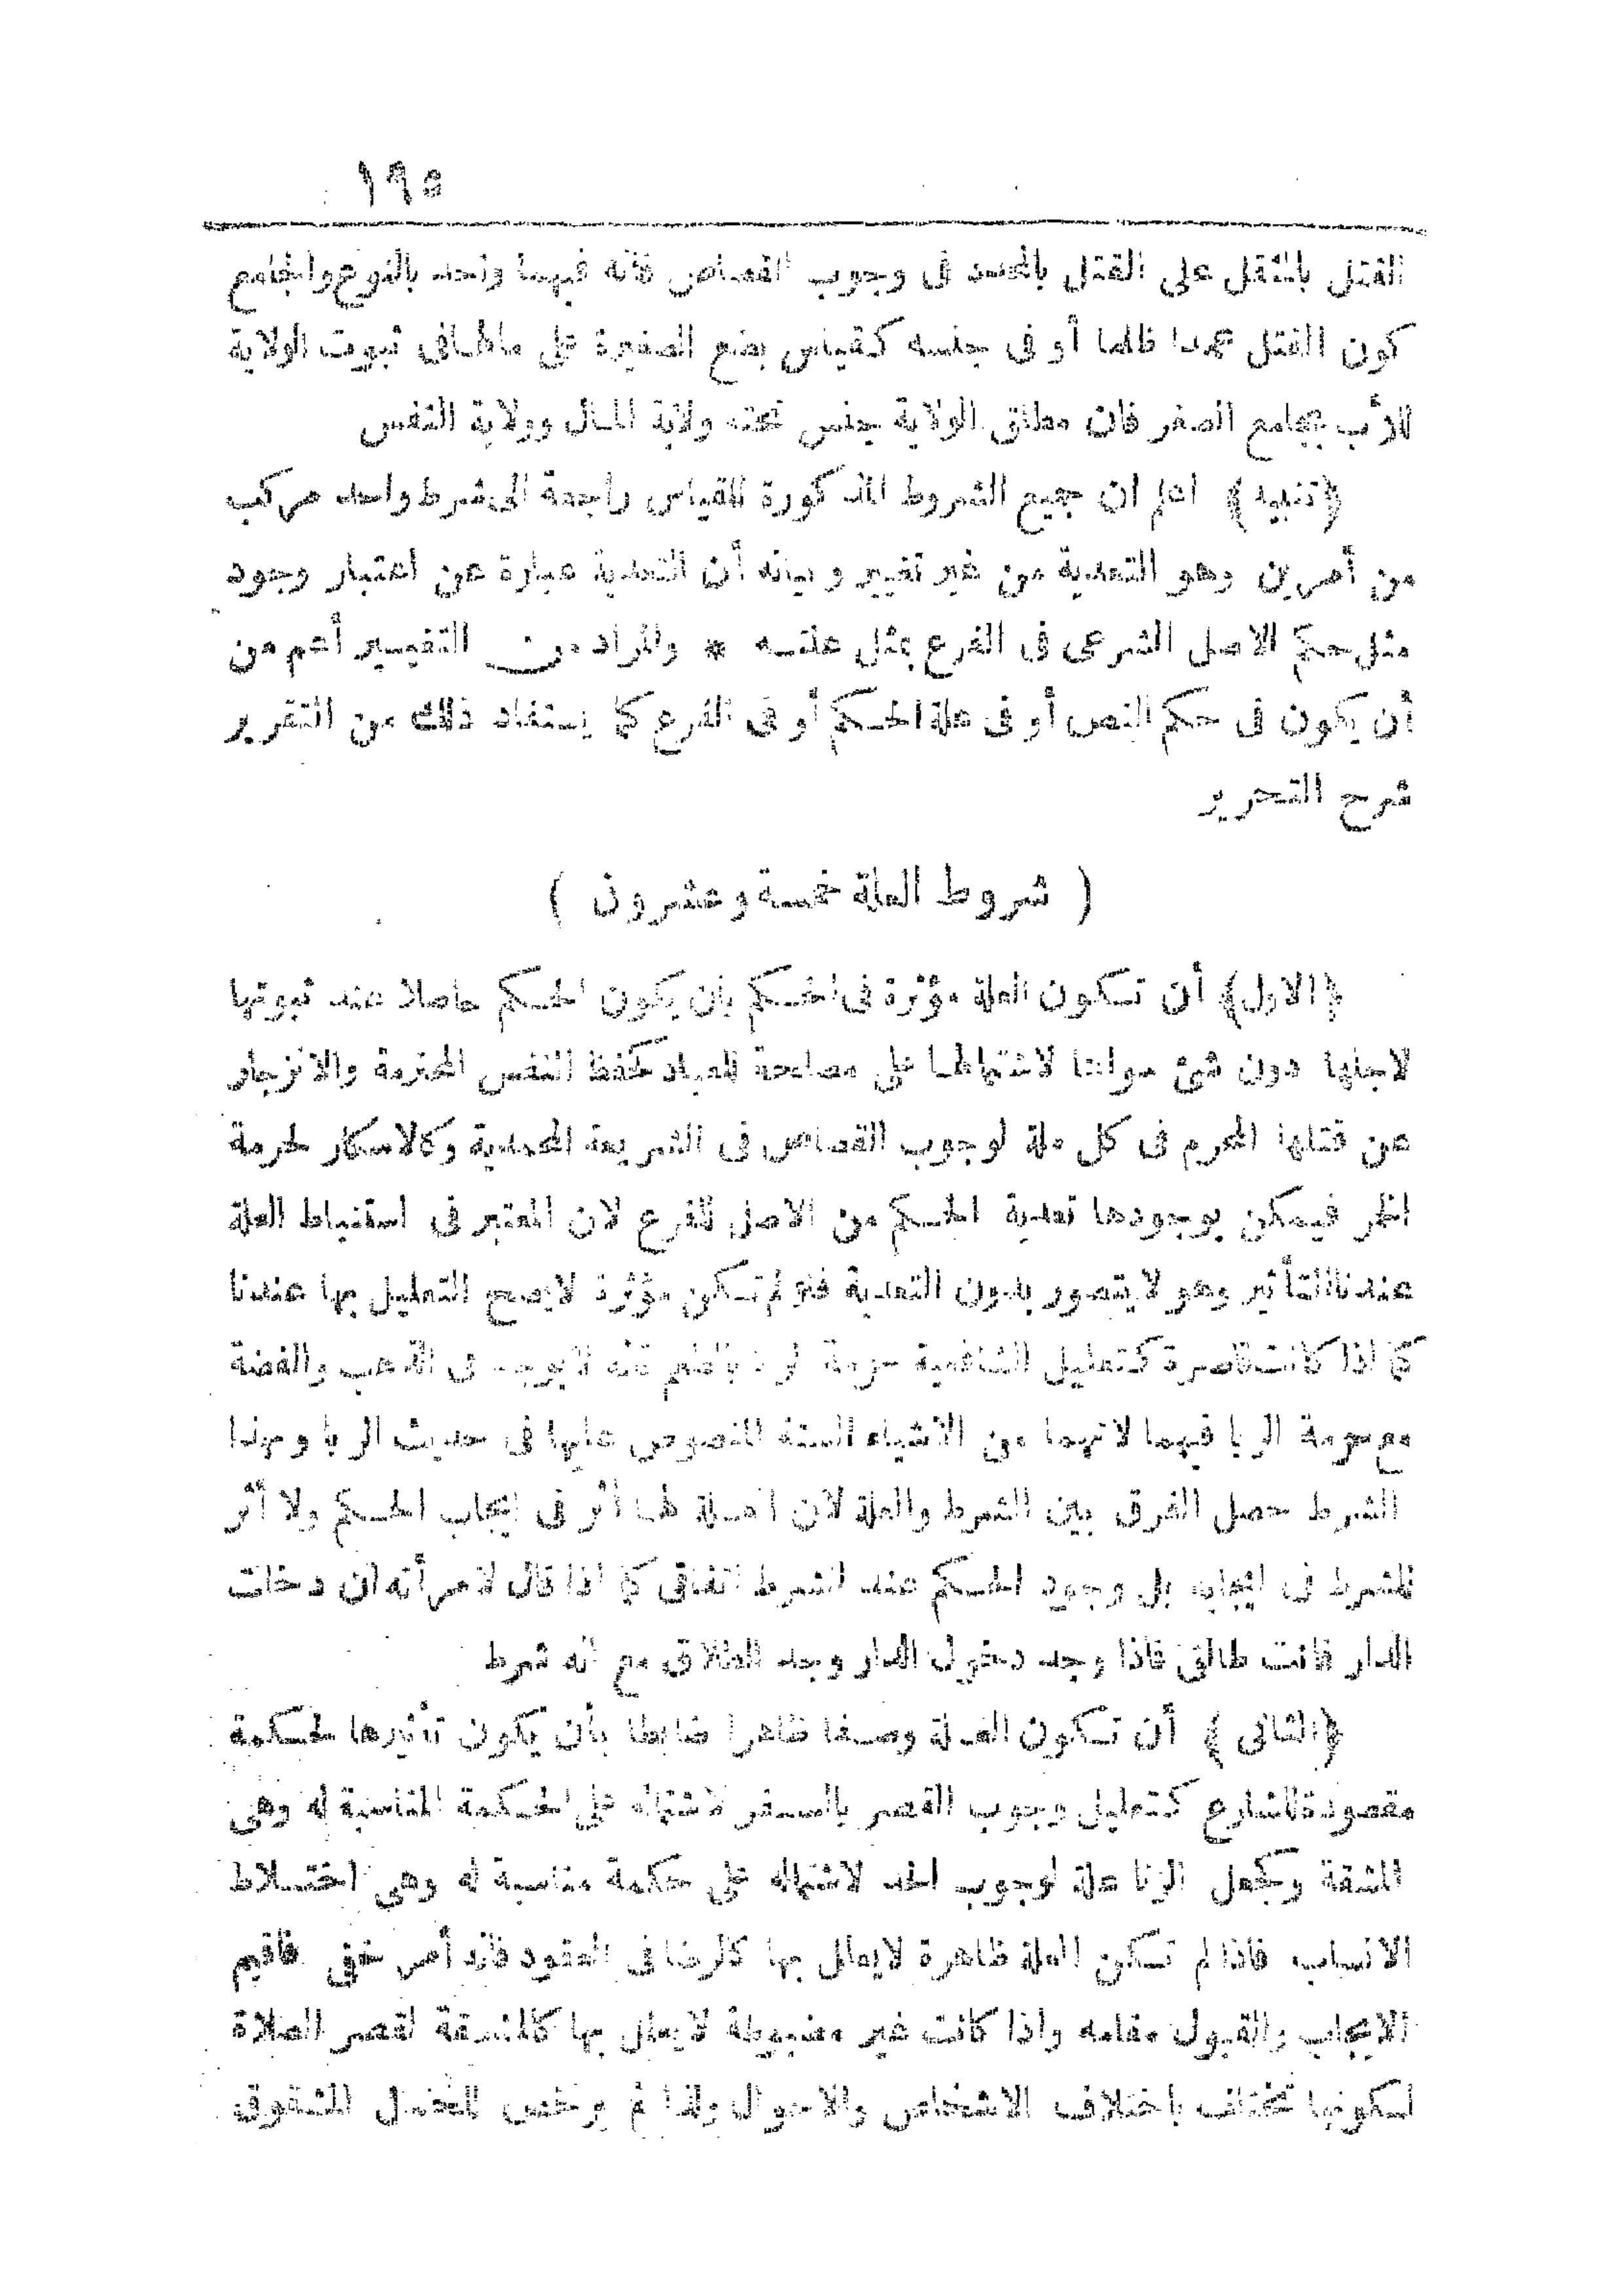 ١٩٥
القتل بالمثقل على القتل بالمحدد فى وجوب القصاص فانه فيهما واحد بالنوع والجامع
كون القتل عمدا ظلما أو فى جنسه كقياس بضع الصغيرة على مالها فى ثبوت الولاية
للأب بجامع الصغر فان مطلق الولاية جنس تحته ولاية المال وولاية النفس
﴿تنبيه﴾ اعلم ان جميع الشروط المذكورة للقياس راجعة الى شرط واحد مركب
من أمرين وهو التعدية من غير تغيير وبيانه أن التعدية عبارة عن اعتبار وجود
مثل حكم الاصل الشرعى فى الفرع بمثل علته * والمراد من التغيير أعم من
أن يكون فى حكم النص أو فى علة الحكم أو فى الفرع كما يستفاد ذلك من التقرير
شرح التحرير
( شروط العلة خمسة وعشرون )
﴿الاول﴾ أن تكون العلة مؤثرة فى الحكم بان يكون الحكم حاصلا عند ثبوتها
لاجلها دون شئ سواها لاشتمالها على مصلحة للعباد كحفظ النفس المحترمة والانزجار
عن قتلها المحرم فى كل ملة لوجوب القصاص فى الشريعة المحمدية وكالاسكار لحرمة
الخمر فيمكن بوجودها تعدية الحكم من الاصل للفرع لان المعتبر فى استنباط العلة
عندنا التأثير وهو لا يتصور بدون التعدية فلو لم تكن مؤثرة لايصح التعليل بها عندنا
كما اذا كانت قاصرة كتعليل الشافعية حرمة الربا بالطعم فانه لا يوجد فى الذهب والفضة
مع حرمة الربا فيهما لانهما من الاشياء الستة المنصوص عليها فى حديث الربا وبهذا
الشرط حصل الفرق بين الشرط والعلة لان العلة لها أثر فى ايجاب الحكم ولا أثر
للشرط فى ايجابه بل وجود الحكم عند الشرط اتفاقى كما اذا قال لامرأته ان دخلت
الدار فانت طالق فاذا وجد دخول الدار وجد الطلاق مع انه شرط
﴿الثانى﴾ أن تكون العلة وصفا ظاهرا ضابطا بأن يكون تأثيرها لحكمة
مقصودة للشارع كتعليل وجوب القصر بالسفر لاشتماله على الحكمة المناسبة له وهى
المشقة وكجعل الزنا علة لوجوب الحد لاشتماله على حكمة مناسبة له وهى اختلاط
الانساب فاذا لم تكن العلة ظاهرة لايعلل بها كالرضا فى العقود فانه أمر خفى فاقيم
الايجاب والقبول مقامه واذا كانت غير مضبوطة لايعلل بها كالمشقة لقصر الصلاة
لكونها تختلف باختلاف الاشخاص والاحوال ولذا لم يرخص للحمال المشقوق